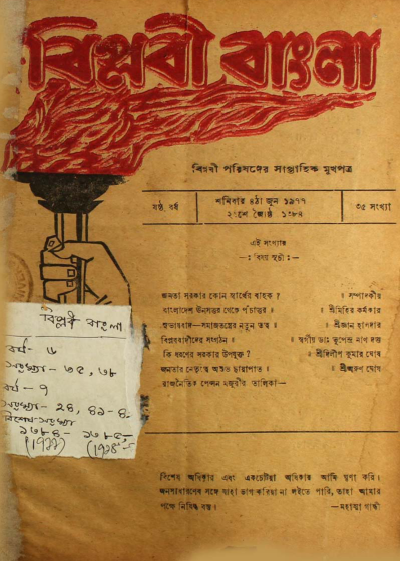 বিপ্লবী বাংলা
বিপ্লবী পরিষদের সাপ্তাহিক মুখপত্র
ষষ্ঠ বর্ষ
শনিবার ৪ঠা জুন ১৯৭৭
২০শে জ্যৈষ্ঠ ১৩৮৪
৩৫ সংখ্যা
এই সংখ্যায়
—: বিষয় সূচী :—
জনতা সরকার কোন স্বার্থের বাহক ? ঃ সম্পাদকীয়
বাংলাদেশ উনসত্তর থেকে পঁচাত্তর ঃ শ্রীমিহির কর্মকার
সুভাষবাদ—সমাজতন্ত্রের নতুন তত্ত্ব ঃ শ্রীজ্ঞান হালদার
বিপ্লববাদীদের সংগঠন ঃ স্বর্গীয় ডাঃ ভূপেন্দ্র নাথ দত্ত
কি ধরণের সরকার উপযুক্ত ? ঃ শ্রীদিলীপ কুমার ঘোষ
জনতার নেতৃত্বে অশুভ ছায়াপাত ঃ শ্রীঅরুণ ঘোষ
রাজনৈতিক পেন্সন মঞ্জুরীর তালিকা—
বিপ্লবী বাংলা
বর্ষ- ৬
সংখ্যা- ৩৫, ৩৮
বর্ষ - ৭
সংখ্যা- ২৪, ৪১-৪
বিশেষ সংখ্যা
১৩৮৪ - ১৩৮৫
(১৯৭৭) (১৯৭৮
বিশেষ অধিকার এবং একচেটিয়া অধিকার আমি ঘৃণা করি।
জনসাধারণের সঙ্গে যাহা ভাগ করিয়া না লইতে পারি, তাহা আমার
পক্ষে নিষিদ্ধ বস্তু। —মহাত্মা গান্ধী